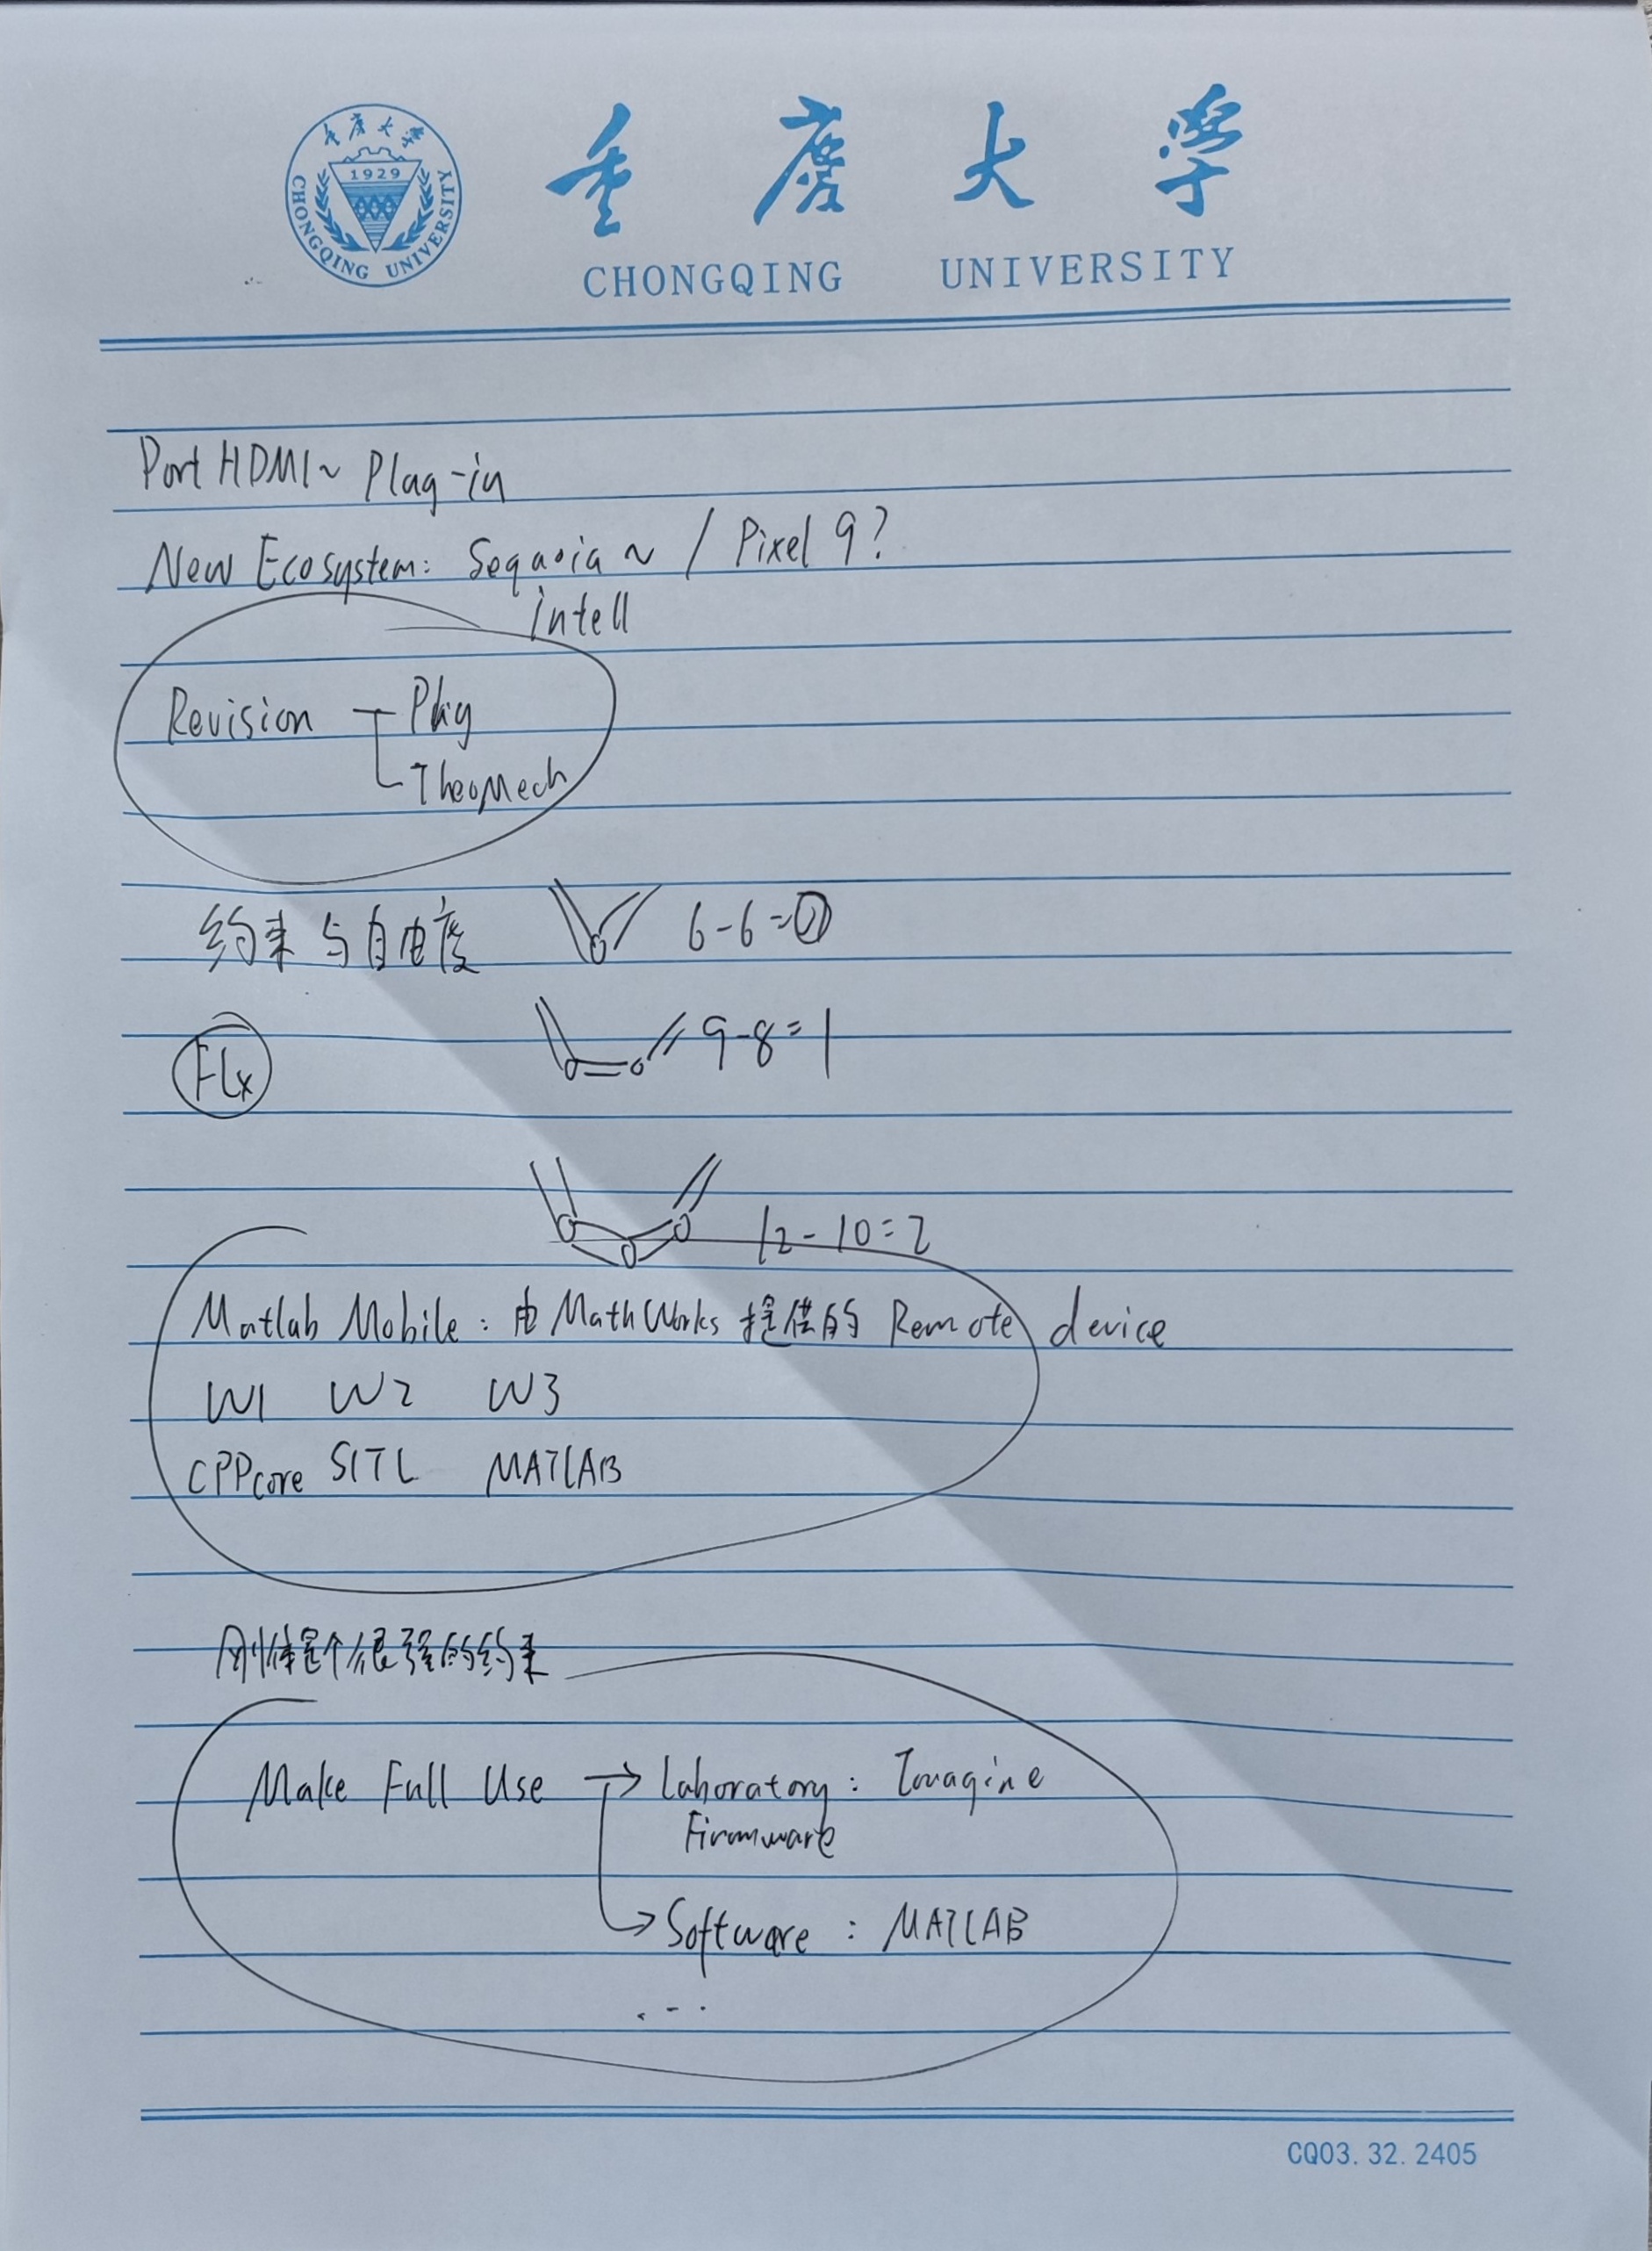 重庆大学
1929
CHONGQING UNIVERSITY
重庆大学
CHONGQING UNIVERSITY
Port HDMI~ Plag-in
New Ecosystem: Sequoia ~ / Pixel 9?
intell
Revision Phy
TheoMech
约束与自由度 6-6=0
FLx 9-8=1
12-10=2
Matlab Mobile: 由MathWorks提供的 Remote device
W1 W2 W3
CPPcore SITL MATLAB
刚体是个很强的约束
Make Full Use → Laboratory: Imagine
Firmware
→ Software: MATLAB
...
CQ03.32.2405